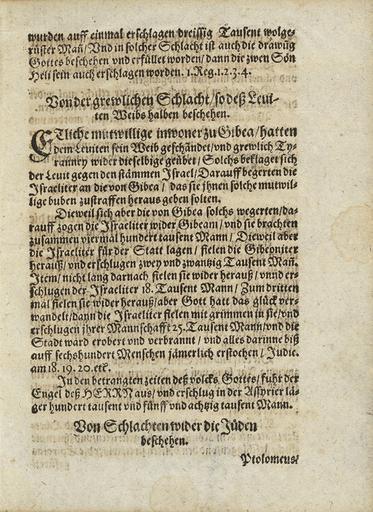 wurden auff einmal erschlagen dreissig Tausent wolge-
rüster Mañ / Vnd in solcher Schlacht ist auch die drawũg
Gottes beschehen vnd erfüllet worden / dann die zwen Sön
Heli sein auch erschlagen worden. 1. Reg. 1. 2. 3. 4.
Von der grewlichen Schlacht / so deß Leui-
ten Weibs halben beschehen.
ETliche mutwillige inwoner zu Gibea / hatten
dem Leuiten sein Weib geschändet / vnd grewlich Ty-
ranney wider dieselbige geübet / Solchs beklaget sich
der Leuit gegen den stämmen Israel / Darauff begerten die
Israeliter an die von Gibea / das sie jhnen solche mutwil-
lige buben zustraffen heraus geben solten.
Dieweil sich aber die von Gibea solchs wegerten / da-
rauff zogen die Israeliter wider Gibeam / vnd sie brachten
zusammen viermal hundert tausent Mann / Dieweil aber
die Israeliter für der Statt lagen / fielen die Gibeoniter
herauß / vnd erschlugen zwey vnd zwantzig Tausent Mañ.
Item / nicht lang darnach fielen sie wider herauß / vnnd er-
schlugen der Israeliter 18. Tausent Mann / Zum dritten
mal fielen sie wider herauß / aber Gott hatt das glück ver-
wandelt / dann die Israeliter fielen mit grimmen in sie / vnd
erschlugen jhrer Mannschafft 25. Tausent Mann / vnd die
Stadt ward erobert vnd verbrannt / vnd alles darinne biß
auff sechshundert Menschen jämerlich erstochen / Judic.
am 18. 19. 20. etc.
In den betrangten zeiten deß volcks Gottes / fuhr der
Engel deß HERRN aus / vnd erschlug in der Assyrier lä-
ger hundert tausent vnd fünff vnd achtzig tausent Mann.
Von Schlachten wider die Jüden
beschehen.
Ptolomeus